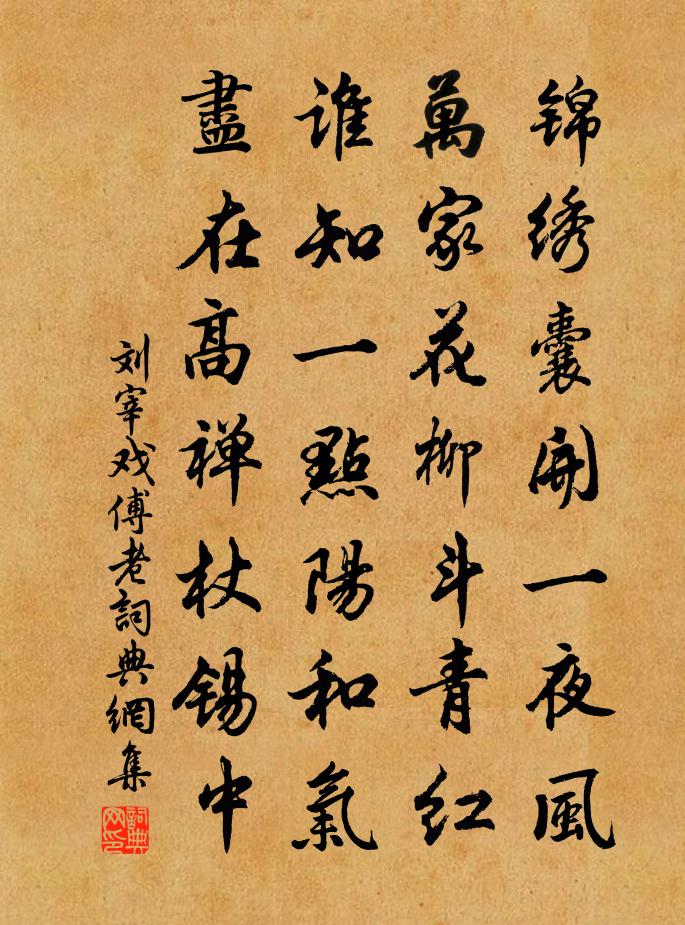 锦绣囊開一夜風
萬家花柳斗青红
誰知一點陽和氣
盡在高禅杖錫中
刘宰戏傅老詞典網集
詞典网印